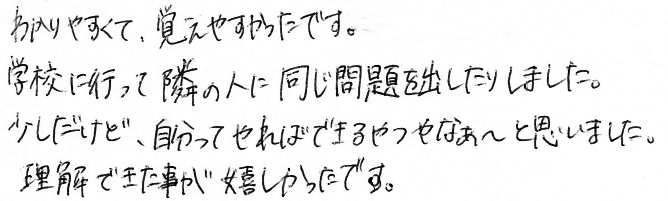 わかりやすくて、覚えやすかったです。
学校に行って隣の人に同じ問題を出したりしました。
少しだけど、自分ってやればできるやつやなぁ〜と思いました。
理解できた事が嬉しかったです。